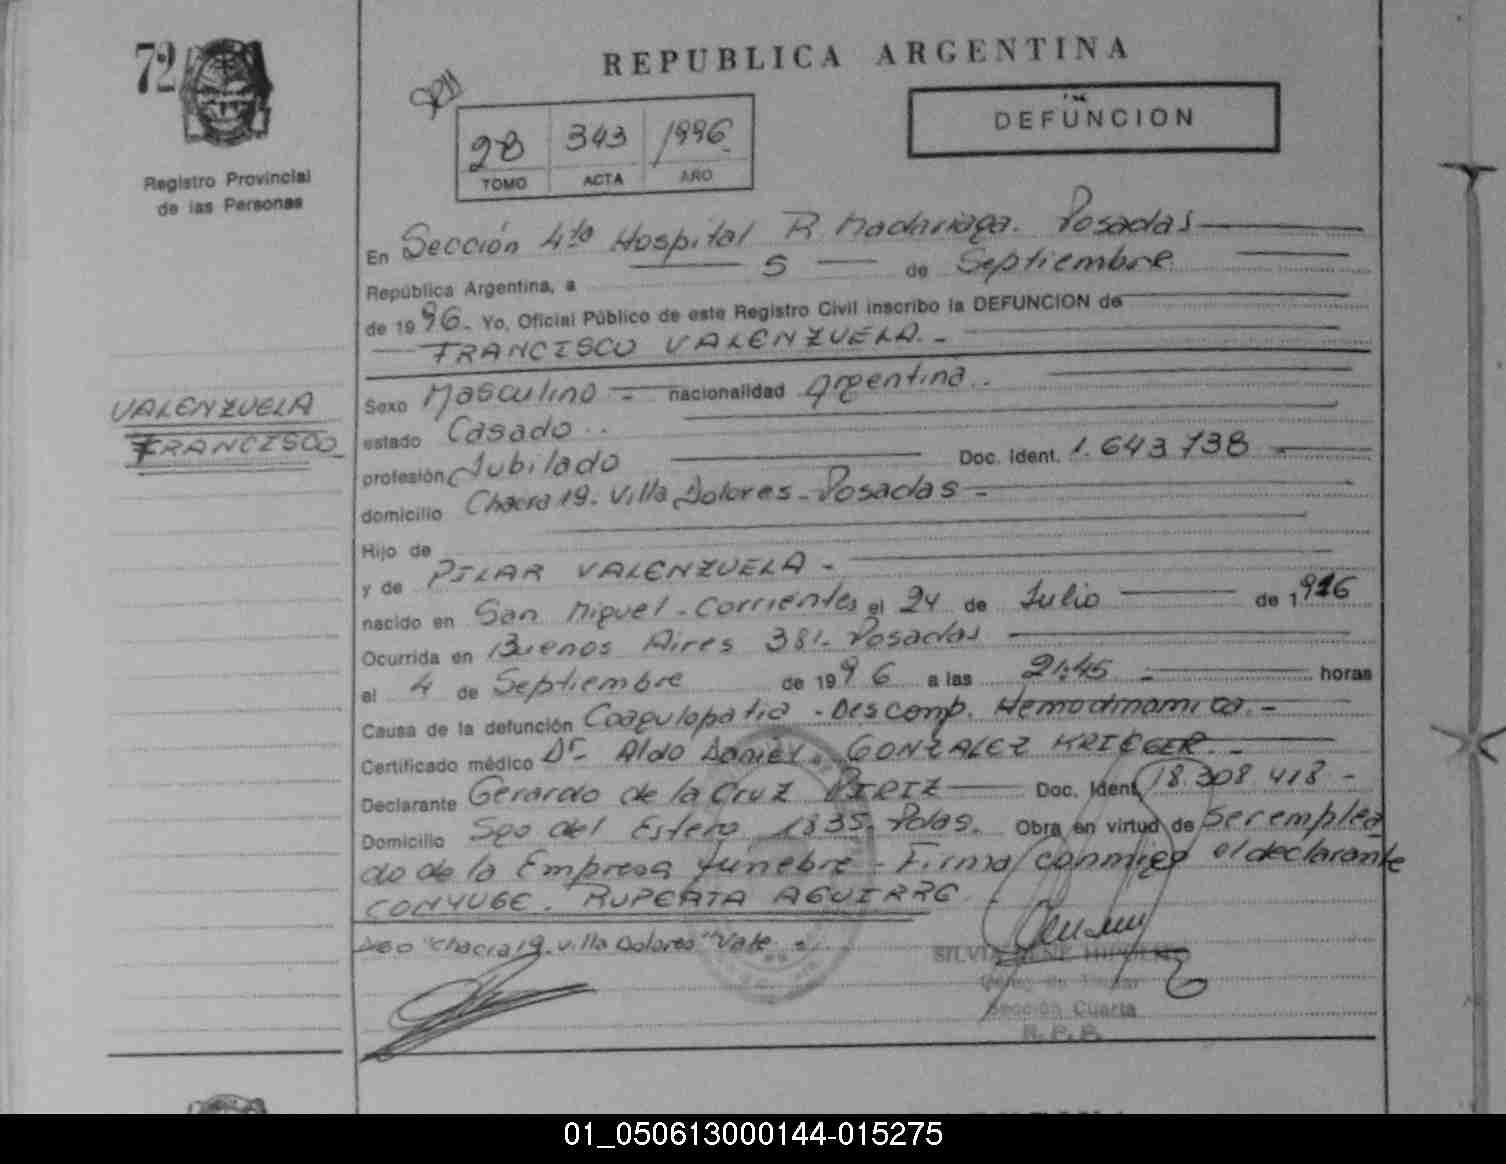 72
REPUBLICA ARGENTINA
DEFUNCION
28 343 1996
TOMO ACTA AÑO
Registro Provincial
de las Personas
En Sección 4ta Hospital R. Madariaga. Posadas
República Argentina, a 5 de Septiembre
de 1996. Yo, Oficial Público de este Registro Civil inscribo la DEFUNCION de
FRANCISCO VALENZUELA.-
VALENZUELA
FRANCISCO
Sexo Masculino - nacionalidad Argentina.
estado Casado..
profesión Jubilado Doc. Ident. 1.643.738
domicilio Chacra 19. Villa Dolores - Posadas -
Hijo de
y de PILAR VALENZUELA -
nacido en San Miguel - Corrientes el 24 de Julio de 1916
Ocurrida en Buenos Aires 381. Posadas
el 4 de Septiembre de 1996 a las 21:45 horas
Causa de la defunción Coagulopatia - Descomp. Hemodinamica.-
Certificado médico Dr. Aldo Daniel GONZALEZ KRIEGER.-
Declarante Gerardo de la Cruz PIRIZ Doc. Ident. 18.308.418 -
Domicilio Sgo del Estero 1835. Pdas. Obra en virtud de Ser emplea
do de la Empresa funebre - Firma conmigo el declarante
CONYUGE. RUPERTA AGUIRRE.
"Chacra 19. Villa Dolores" Vale.
SILVIA HIPOLITO
Sección Cuarta
R. P. P.
01_050613000144-015275